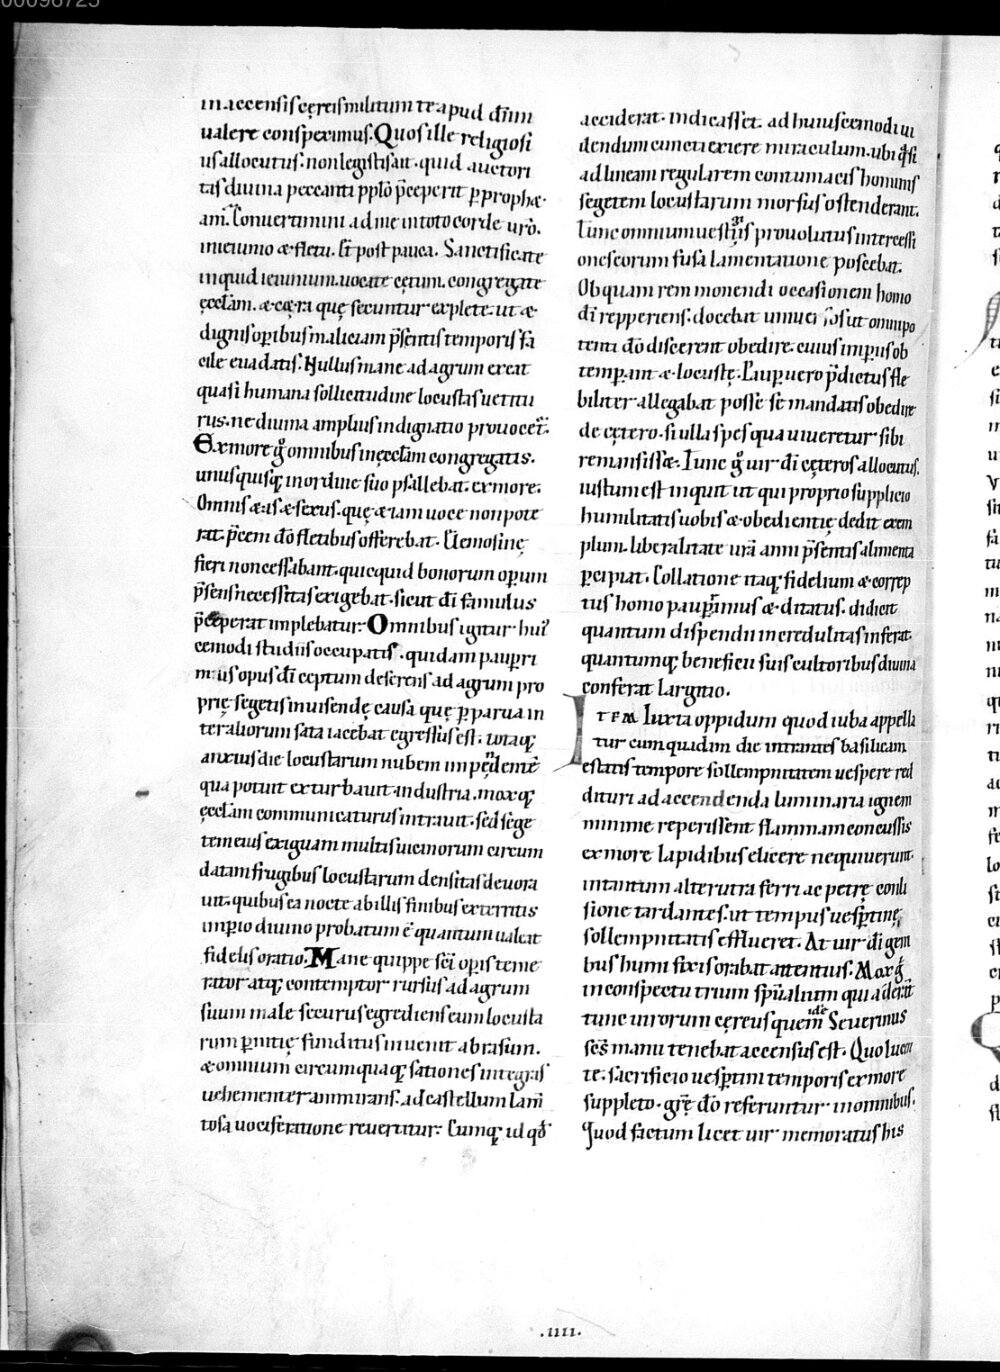 00098725
in accensis cęreis militum te apud dn̄m
ualere conspeximus. Quos ille religiosi
us allocutus. non legistis ait. quid auctori
tas diuina peccanti pp̄lo p̄ceperit ꝑ prophę
am. Conuertimini ad me in toto corde ur̄o.
in ieiunio & fletu. Et post pauca. Sanctificate
inquid ieiunium. uocate cętum. congregate
ęcclam̄. & cęt̄a quę secuntur explete. ut &
dignis oꝑibus maliciam p̄sentis temporis fa
cile euadatis. Nullus mane ad agrum exeat
quasi humana sollicitudine locustas uetitu
rus. ne diuina amplius indignatio prouocet̄.
Ex more g̊ omnibus in ęcclam̄ congregatis.
unusquisq; in ordine suo psallebat. ex more.
Omnis &as & sexus. quę &iam uoce non pote
rat. p̄cem do̅ fletibus offerebat. Elemosinę
fieri non cessabant. quicquid bonorum oꝑum
p̄sens necessitas exigebat. sicut di̅ famulus
p̄ceperat implebatur. Omnibus igitur hui'
cemodi studiis occupatis. quidam pauꝑri
mus opus di̅ ceptum deserens ad agrum pro
prię segetis inuisendę causa quę ꝑparua in
ter aliorum sata iacebat egressus est. totaq;
anxius die locustarum nubem impendentē
qua potuit exturbauit industria. moxq;
ęcclam̄ communicaturus intrauit. sed sege
tem eius exiguam multis uicinorum circum
datam frugibus locustarum densitas deuora
uit. quibus ea nocte ab illis finibus exterritis
imꝑio diuino probatum ē quantum ualeat
fidelis oratio. Mane quippe sc̄i oꝑis teme
rator atq; contemptor rursus ad agrum
suum male securus egrediens eum locusta
rum ꝑnitię funditus inuenit abrasum.
& omnium circumquaq; sationes integras
uehementer ammirans. ad castellum lam̄
tosa uociferatione reuertitur. Cumq; id qđ
acciderat. indicasset. ad huiuscemodi ui
dendum cuncti exiere miraculum. ubi q̊si
ad lineam regularem contumacis hominis
segetem locustarum morsus ostenderant.
Tunc omnium uestigiis prouolutus intercessi
onis eorum fusa lamentatione poscebat.
Ob quam rem monendi occasionem homo
di̅ repperiens. docebat uniuersos ut omnipo
tenti do̅ discerent obedire. cuius imꝑiis ob
temꝑant & locustę. Pauꝑ uero p̄dictus fle
biliter allegabat posse se mandatis obedire
de cętero. si ulla spes qua uiueretur sibi
remansiss&. Tunc g̊ uir di̅ cęteros allocutus.
iustum est inquit ut qui proprio supplicio
humilitatis uobis & obedientię dedit exem
plum. liberalitate ur̄a anni p̄sentis alimenta
ꝑcipiat. Collatione itaq; fidelium & correp
tus homo pauꝑrimus & ditatus. didicit
quantum dispendii incredulitas inferat.
quantumq; beneficii suis cultoribus diuina
conferat largitio.
ITEM Iuxta oppidum quod iuba appella
tur cum quadam die intrantes basilicam
estatis tempore sollempnitatem uespere red
dituri ad accendenda luminaria ignem
minime reperissent flammam concussis
ex more lapidibus elicere nequiuerunt.
intantum alterutra ferri ac petrę conli
sione tardantes. ut tempus uesꝑtinę
sollempnitatis efflueret. At uir di̅ geni
bus humi fixis orabat attentius. Mox g̊
in conspectu trium spūalium qui aderant
tunc uirorum cereus quem idē Seuerinus
sc̄s manu tenebat accensus est. Quo lucen
te. sacrificio uesꝑtini temporis ex more
suppleto. grē do̅ referuntur in omnibus.
Quod factum licet uir memoratus his
.IIII.